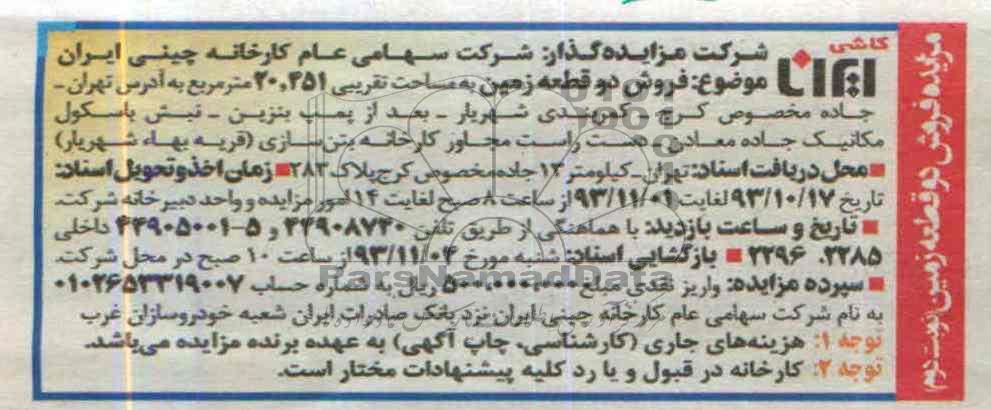 مزایده فروش دو قطعه زمین (نوبت دوم)
کاشی
ایرانا
شرکت مزایده‌گذار: شرکت سهامی عام کارخانه چینی ایران
موضوع: فروش دو قطعه زمین به مساحت تقریبی ۲۰,۳۵۱ مترمربع به آدرس تهران -
جاده مخصوص کرج - کمربندی شهریار - بعد از پمپ بنزین - نبش باسکول
مکانیک جاده معادن - دست راست مجاور کارخانه بتن‌سازی (قریه بهاء شهریار)
محل دریافت اسناد: تهران - کیلومتر ۱۳ جاده مخصوص کرج پلاک ۲۸۳ زمان اخذ و تحویل اسناد:
تاریخ ۹۳/۱۰/۱۷ لغایت ۹۳/۱۱/۰۱ از ساعت ۸ صبح لغایت ۱۴ امور مزایده و واحد دبیرخانه شرکت.
تاریخ و ساعت بازدید: با هماهنگی از طریق تلفن ۴۴۹۰۸۷۳۰ و ۵-۴۴۹۰۵۰۰۱ داخلی
۲۲۸۵، ۲۲۹۶ بازگشایی اسناد: شنبه مورخ ۹۳/۱۱/۰۴ از ساعت ۱۰ صبح در محل شرکت.
سپرده مزایده: واریز نقدی مبلغ ۵۰۰،۰۰۰،۰۰۰ ریال به شماره حساب ۰۱۰۲۶۵۳۳۱۹۰۰۷
به نام شرکت سهامی عام کارخانه چینی ایران نزد بانک صادرات ایران شعبه خودروسازان غرب
توجه ۱: هزینه‌های جاری (کارشناسی، چاپ آگهی) به عهده برنده مزایده می‌باشد.
توجه ۲: کارخانه در قبول و یا رد کلیه پیشنهادات مختار است.
ParsNamadData